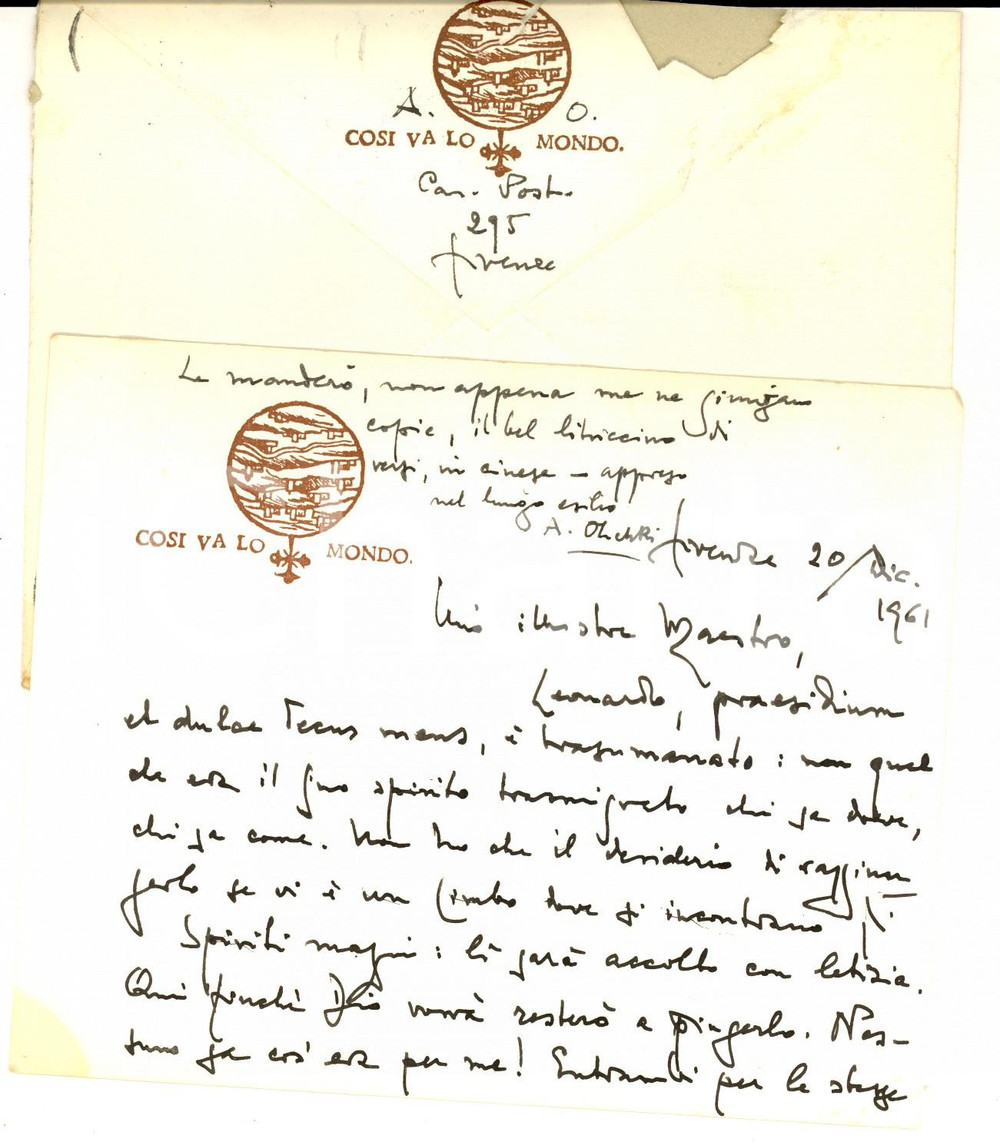 A. O.
COSI VA LO MONDO.
Cas. Post.
295
Firenze
Le manderò, non appena me ne giungano
copie, il bel libriccino di
versi, in cinese – appreso
nel lungo esilio
A. Olschki
COSI VA LO MONDO.
Firenze 20/Dic.
1961
Mio illustre Maestro,
Leonardo, praesidium
et dulce decus meus, è trasumanato: non quel
che era il suo spirito trasmigrato chi sa dove,
chi sa come. Non ho che il desiderio di raggiun
gerlo se vi è un Limbo dove si incontrano gli
Spiriti magni: lì sarà accolto con letizia.
Qui finché Dio vorrà resterò a piangerlo. Nes-
suno sa cos' era per me! Entrambi per le stesse